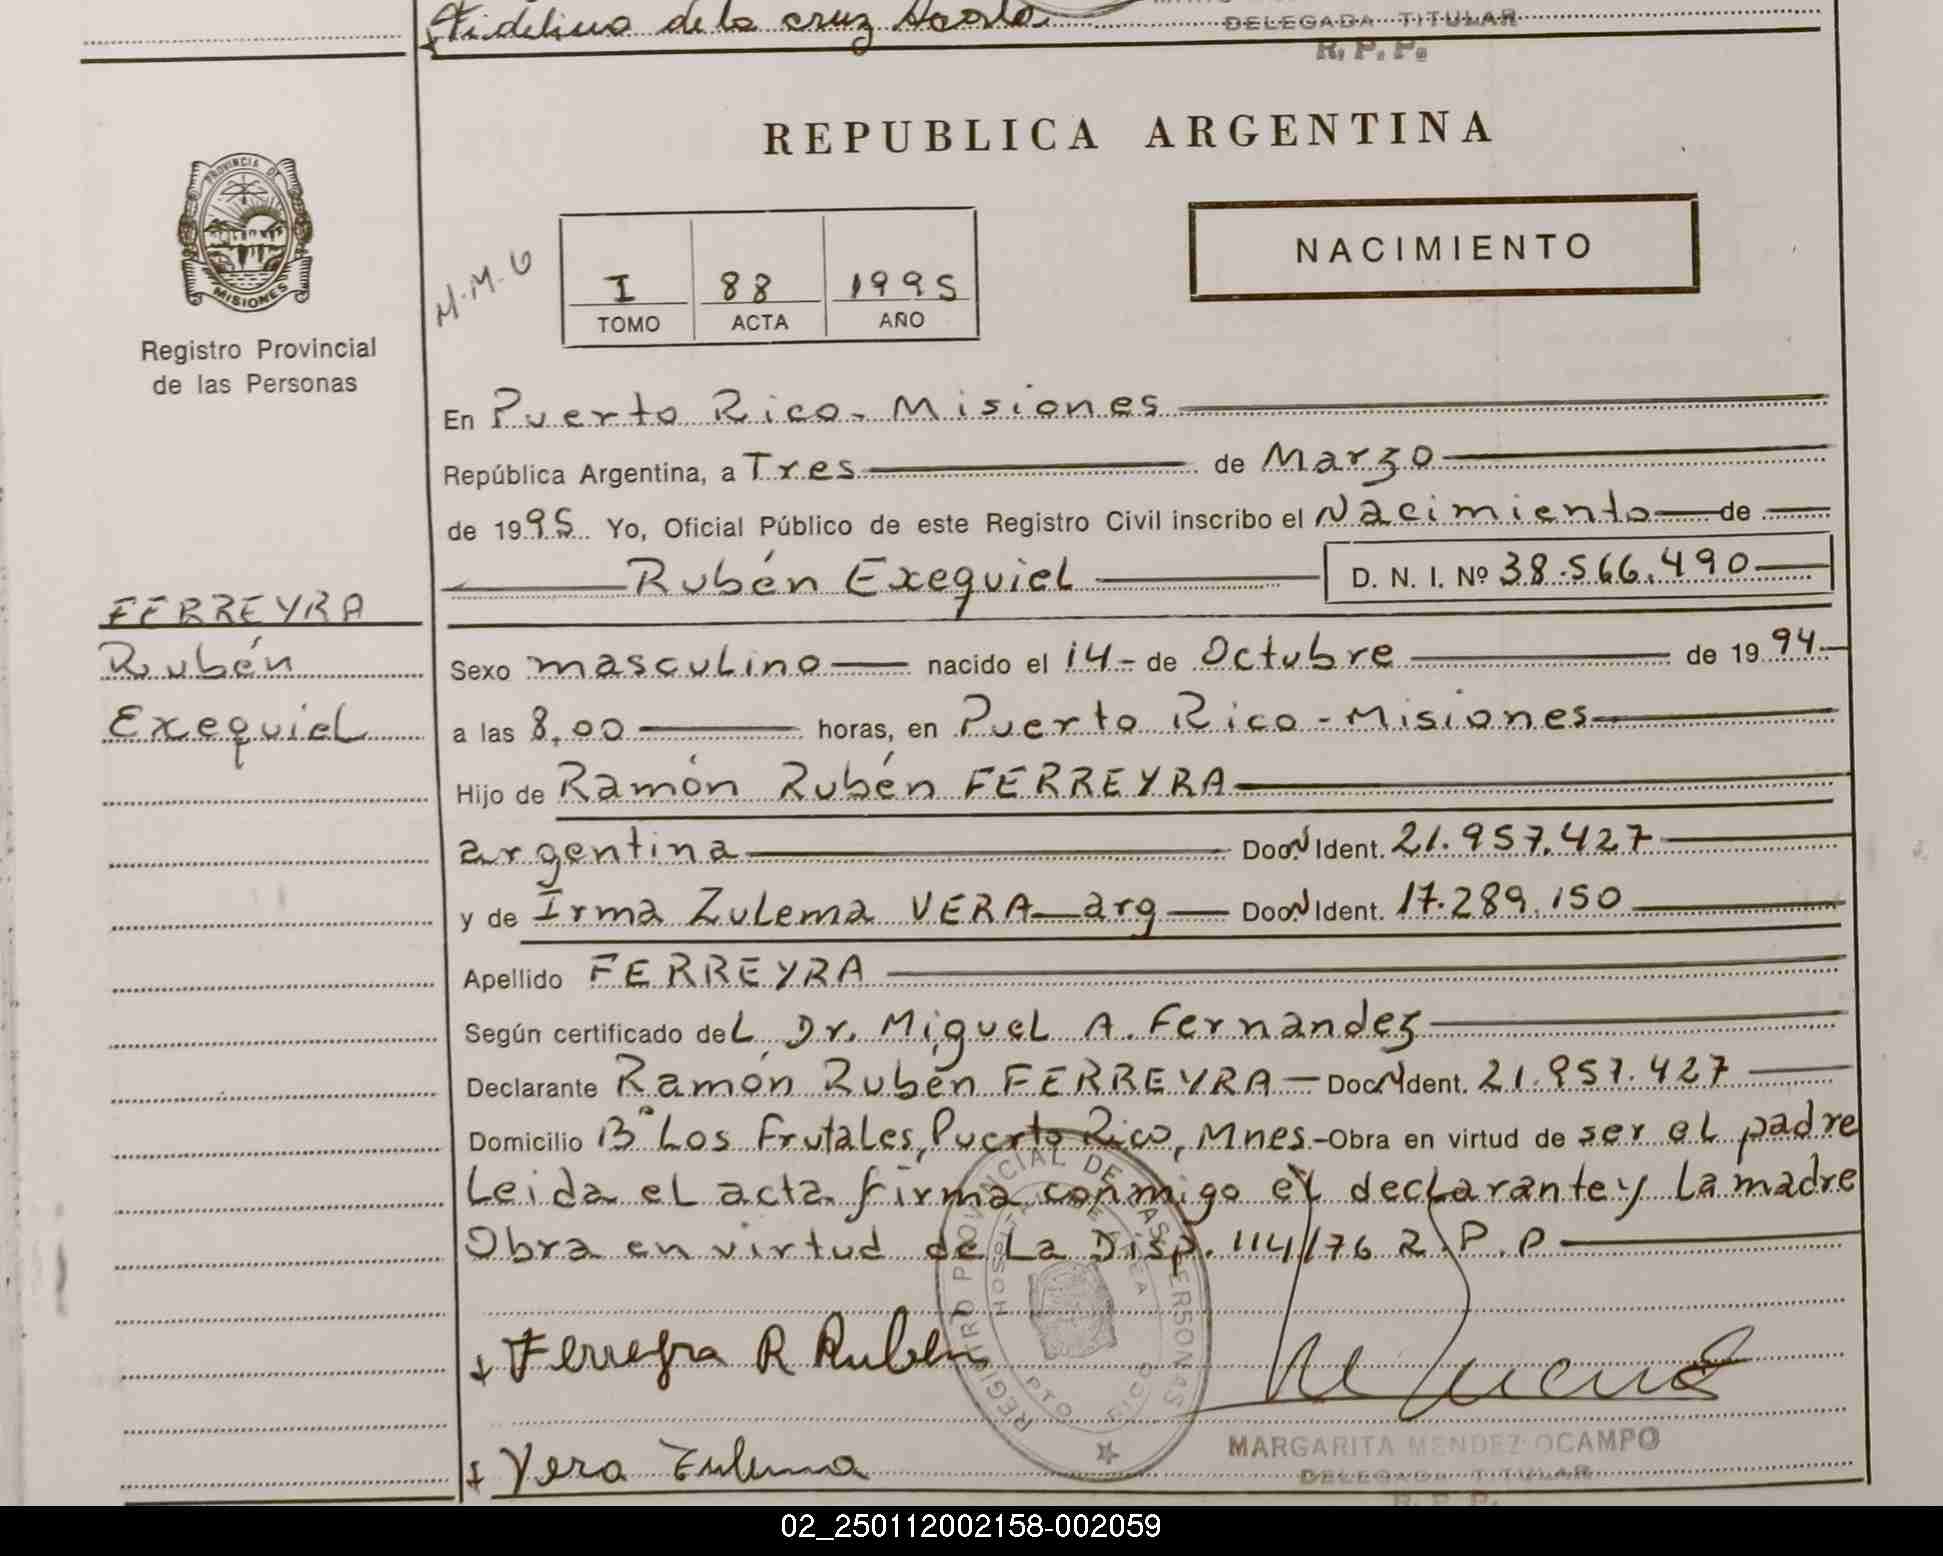 Fidelino de la cruz Acosta
DELEGADA TITULAR
R. P. P.
REPUBLICA ARGENTINA
PROVINCIA DE
MISIONES
Registro Provincial
de las Personas
M.M.G
I 88 1995
TOMO ACTA AÑO
NACIMIENTO
En Puerto Rico - Misiones
República Argentina, a Tres de Marzo
de 1995 Yo, Oficial Público de este Registro Civil inscribo el Nacimiento de
Rubén Exequiel D. N. I. Nº 38.566.490
FERREYRA
Rubén
Exequiel
Sexo masculino nacido el 14 - de Octubre de 1994
a las 8,00 horas, en Puerto Rico - Misiones
Hijo de Ramón Rubén FERREYRA
argentina Doc. Ident. 21.957.427
y de Irma Zulema VERA arg Doc. Ident. 17.289.150
Apellido FERREYRA
Según certificado del Dr. Miguel A. Fernandez
Declarante Ramón Rubén FERREYRA - Doc. Ident. 21.957.427
Domicilio Bº Los Frutales, Puerto Rico, Mnes.- Obra en virtud de ser el padre
Leida el acta firma conmigo el declarante y la madre
Obra en virtud de La Disp. 114/76 R.P.P
REGISTRO PROVINCIAL DE LAS PERSONAS
HOSPITAL DE AREA
PTO RICO
Ferreyra R Ruben
Vera Zulema
MARGARITA MENDEZ OCAMPO
DELEGADA TITULAR
R. P. P.
02_250112002158-002059